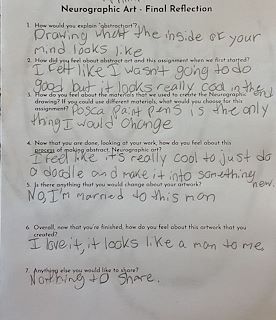 Neurographic Art - Final Reflection
1. How would you explain "abstraction?"
Drawing what the inside of your
mind looks like
2. How did you feel about abstract art and this assignment when we first started?
I felt like I wasn't going to do
good but it looks really cool in the end
3. How do you feel about the materials that we used to create the Neurographic
drawing? If you could use different materials, what would you choose for this
assignment? Posca paint pens is the only
thing I would change
4. Now that you are done, looking at your work, how do you feel about this
process of making abstract, Neurographic art?
I feel like it's really cool to just do
a doodle and make it into something new.
5. Is there anything that you would change about your artwork?
No, I'm married to this man
6. Overall, now that you're finished, how do you feel about this artwork that you
created?
I love it, it looks like a man to me.
7. Anything else you would like to share?
Northing to share.